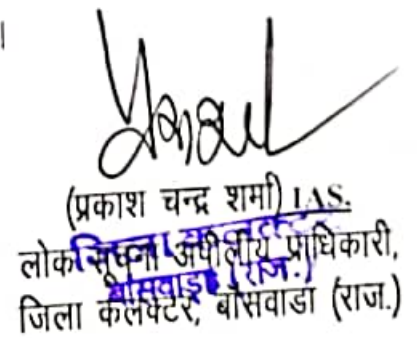 (प्रकाश चन्द्र शर्मा) IAS.
लोक सूचना अपीलीय प्राधिकारी,
जिला कलेक्टर, बांसवाडा (राज.)
जिला कलक्टर
बांसवाड़ा (राज.)